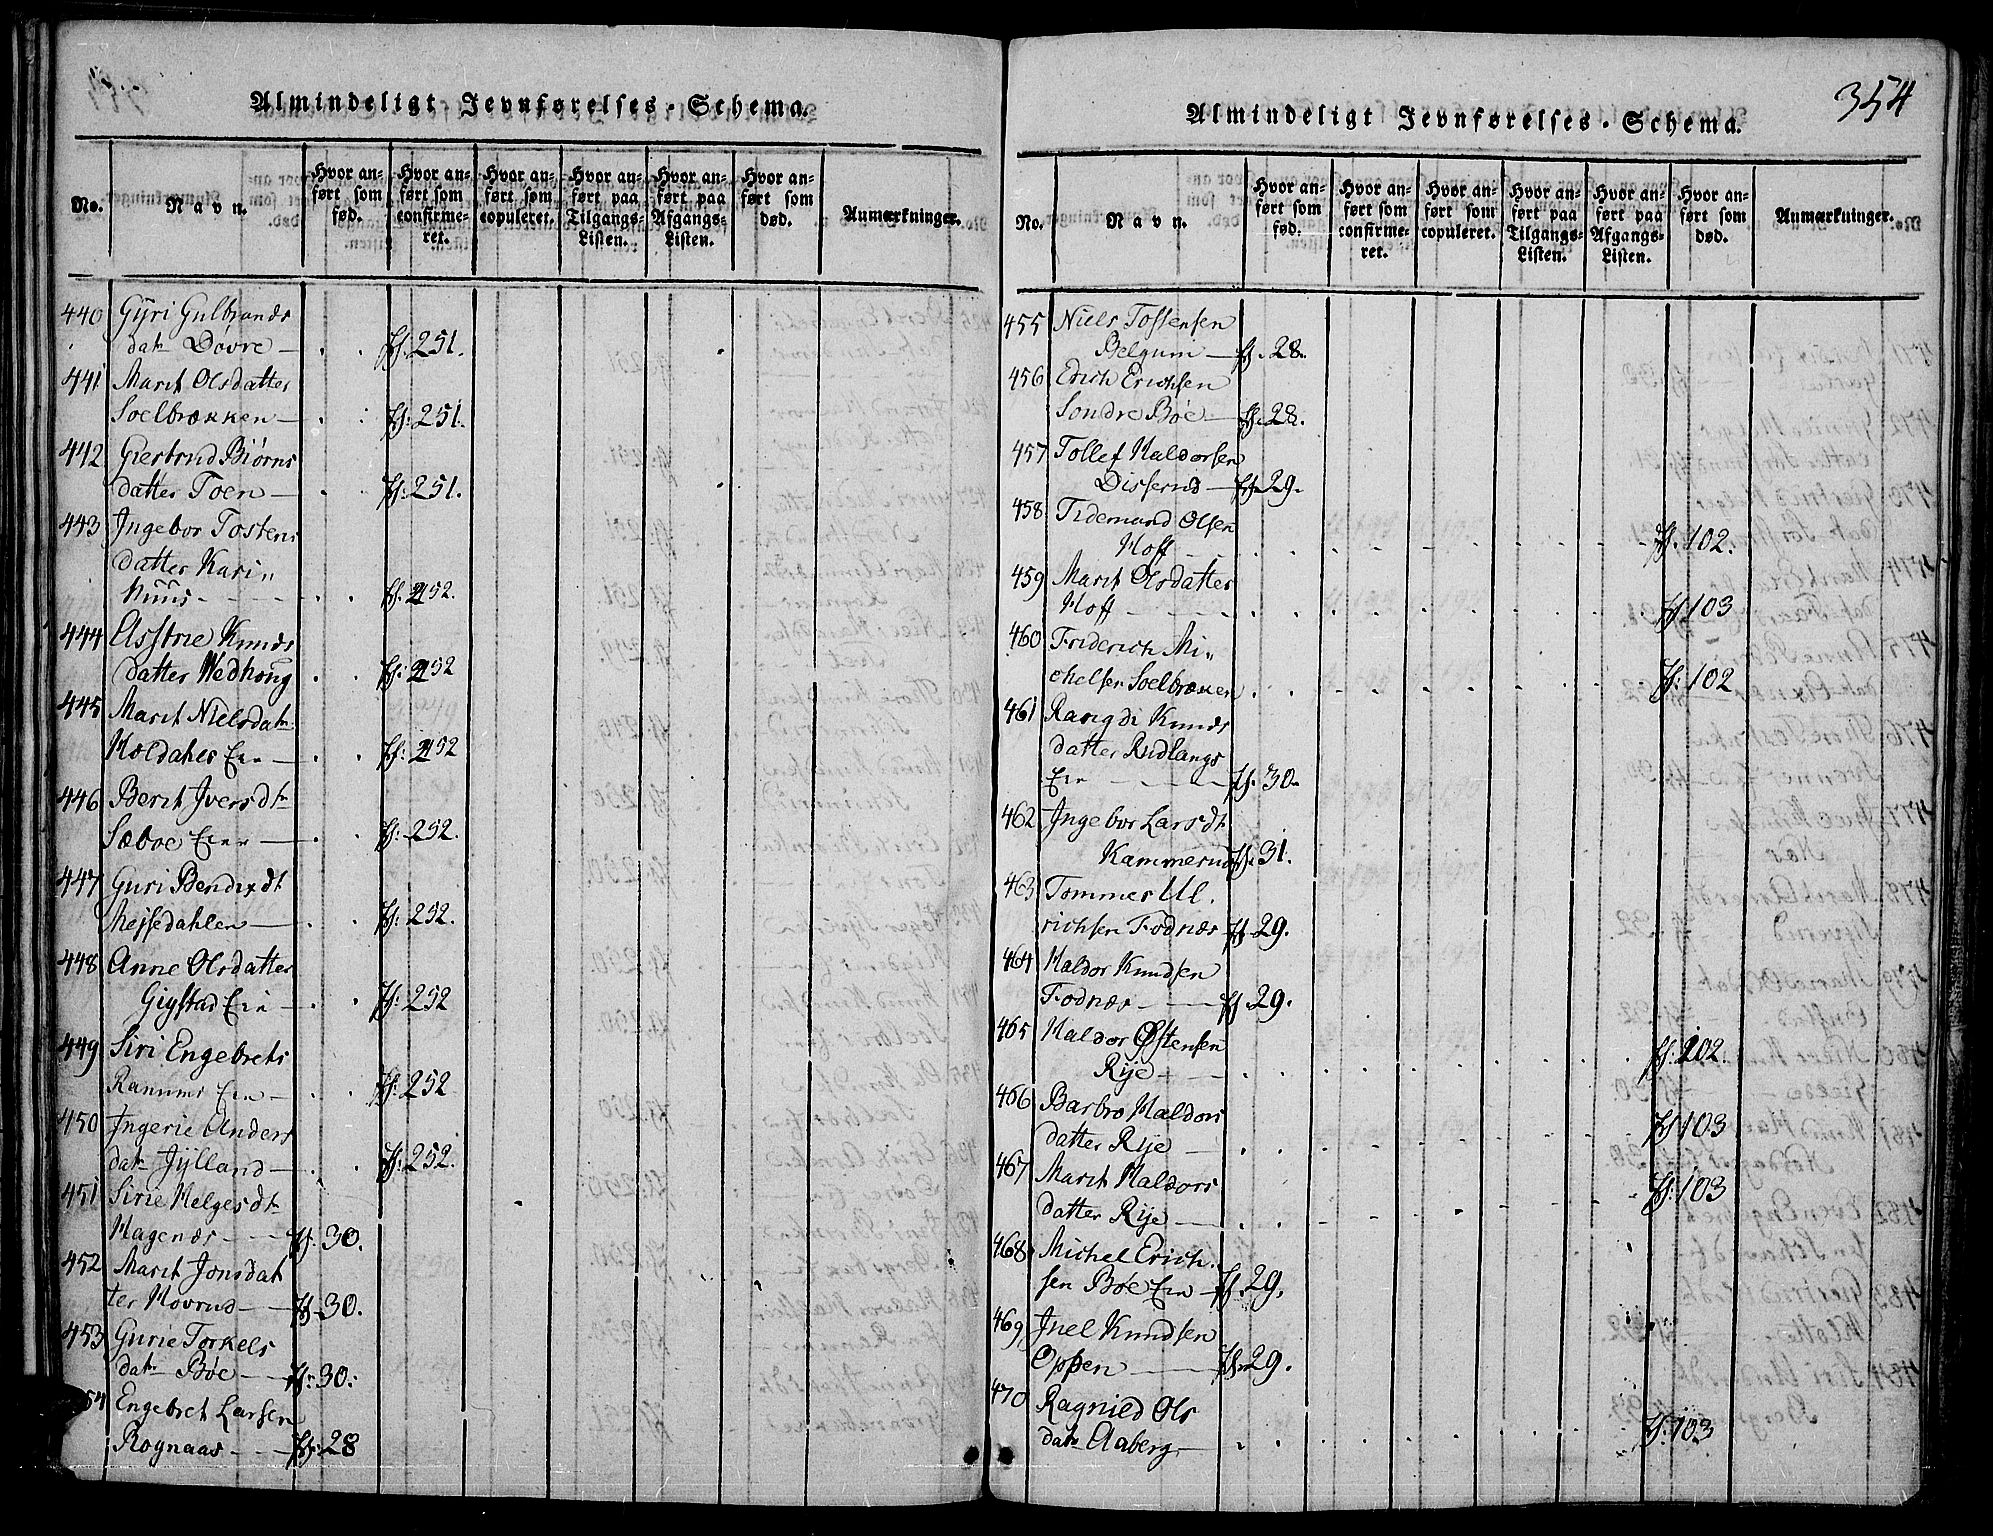 Almindeligt Jevnførelses-Schema.
No.
Navn.
Hvor anført som fød.
Hvor anført som confirmeret.
Hvor anført som copuleret.
Hvor anført paa Tilgangs-Listen.
Hvor anført paa Afgangs-Listen.
Hvor anført som død.
Anmærkninger.
440 Gÿri Gulbrands
datr Dovre — ff. 251.
441 Marit Olsdatter
Soelbrækken — ff: 251.
442 Giertrud Biørns
datter Toen — ff: 251.
443 Ingebor Tostens
datter Kari„
huus - ff: 252.
444 Asstrie Knuds
datter Wedhoug ff: 252
445 Marit Nielsdatr
Holdahes Eie — ff: 252
446 Berit Iversdtr
Sæboe Eie — ff: 252.
447 Guri Bendixdt
Mejssedahlen — ff: 252.
448 Anne Olsdatter
Gigstad Eie — ff: 252
449 Siri Engebrets
Rammes Eie — ff: 252
450 Ingerie Anders
datr Jylland — ff: 252.
451 Sirie Helgesdtr
Hagenæs — ff. 30.
452 Marit Jonsdat
ter Hovrud — ff. 30.
453 Gurie Torkels
datr Bøe — ff: 30.
454 Engebret Larsen
Rognaas — ff: 28
354
Almindeligt Jevnførelses-Schema.
No.
Navn.
Hvor anført som fød.
Hvor anført som confirmeret.
Hvor anført som copuleret.
Hvor anført paa Tilgangs-Listen.
Hvor anført paa Afgangs-Listen.
Hvor anført som død.
Anmærkninger.
455 Niels Tossensen
Belgum — ff. 28.
456 Erich Erichsen
Søndre Bøe — ff. 28.
457 Tollef Haldorsen
Disserud — ff. 29.
458 Tidemand Olsen
Hoff ff. 102.
459 Marit Olsdatter
Hoff ff 103
460 Friderich Mi„
chelsen Soelbræken ff: 102
461 Rangdi Knuds
datter Rudlangs
Eie — ff. 30.
462 Ingebor Larsdt.
Kammerud ff. 31.
463 Tommes Ul.
richsen Fodnæs ff 29.
464 Haldor Knudsen
Fodnæs — ff. 29.
465 Haldor Østensen
Rÿe ff: 102.
466 Barbro Haldors
datter Rÿe ff 103
467 Marit Haldors
datter Rÿe — ff: 103
468 Michel Erich.
sen Bøe Eie — ff. 29.
469 Juel Knudsen
Oppen — ff. 29.
470 Ragnied Ols
datr Aaberg — ff: 103